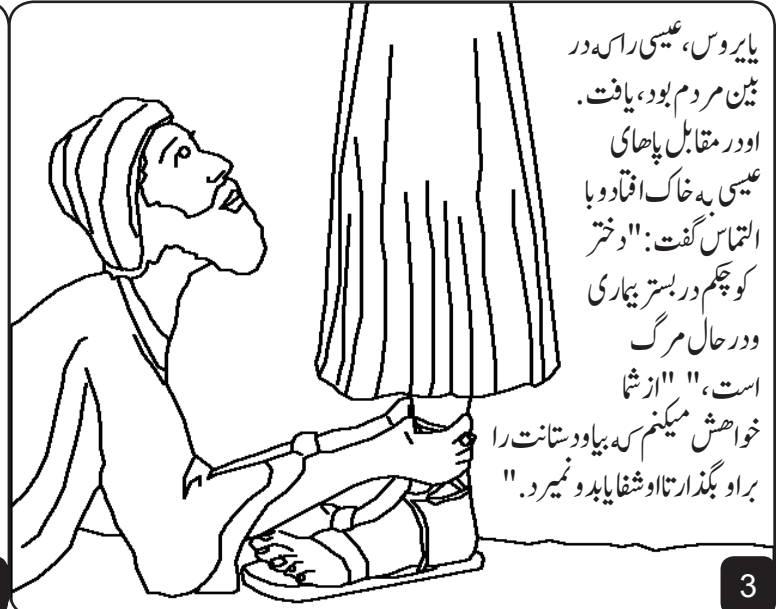 یایروس، عیسی را که در
بین مردم بود، یافت.
او در مقابل پاهای
عیسی به خاک افتاد و با
التماس گفت: "دختر
کوچکم در بستر بیماری
و در حال مرگ
است،" "از شما
خواهش میکنم که بیا و دستانت را
بر او بگذار تا او شفا یابد و نمیرد."
3